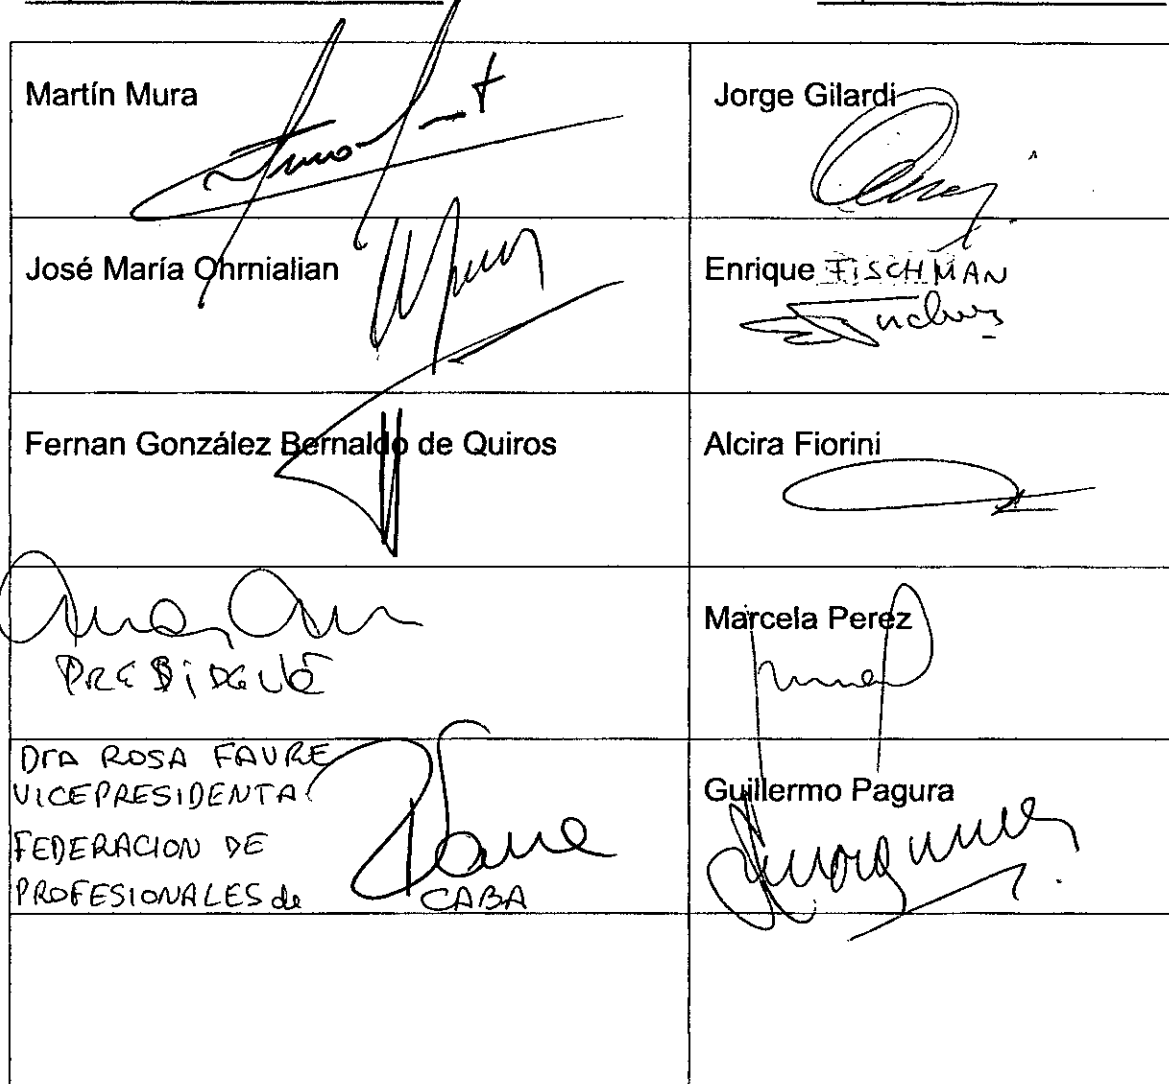 Martín Mura
Jorge Gilardi
José María Ohrnialian
Enrique FISCHMAN
Fernan González Bernaldo de Quiros
Alcira Fiorini
PRESIDENTE
Marcela Perez
DRA ROSA FAURE
VICEPRESIDENTA
FEDERACION DE
PROFESIONALES de CABA
Guillermo Pagura